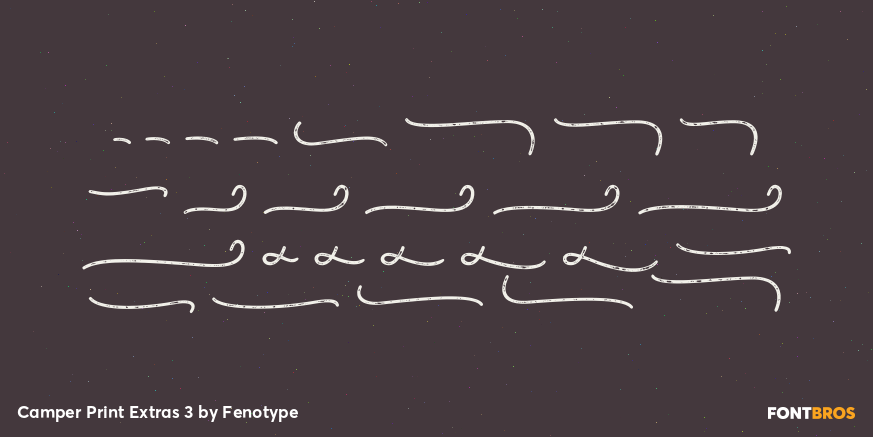 Camper Print Extras 3 by Fenotype
FONTBROS